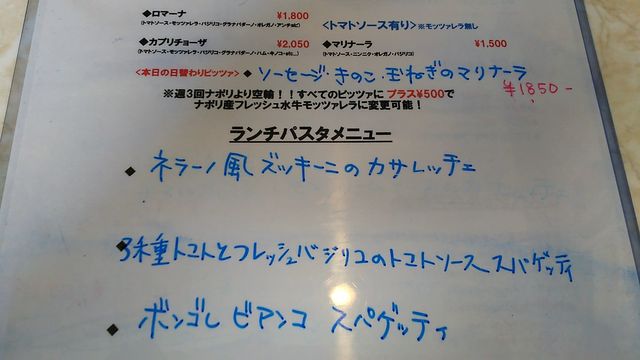 ◆ロマーナ ¥1,800
(トマトソース・モッツァレラ・バジリコ・グラナパダーノ・オレガノ・アンチョビ)
<トマトソース有り>※モッツァレラ無し
◆カプリチョーザ ¥2,050
(トマトソース・モッツァレラ・バジリコ・グラナパダーノ・ハム・キノコ・etc...)
◆マリナーラ ¥1,500
(トマトソース・ニンニク・オレガノ・バジリコ)
<本日の日替わりピッツァ> ◆ ソーセージ・きのこ・玉ねぎのマリナーラ
¥1850-
※週3回ナポリより空輸!!すべてのピッツァに プラス¥500で
ナポリ産フレッシュ水牛モッツァレラに変更可能!
ランチパスタメニュー
◆ ネラーノ風 ズッキーニの カサレッチェ
◆ 3種トマトとフレッシュバジリコのトマトソース スパゲッティ
◆ ボンゴレ ビアンコ スパゲッティ